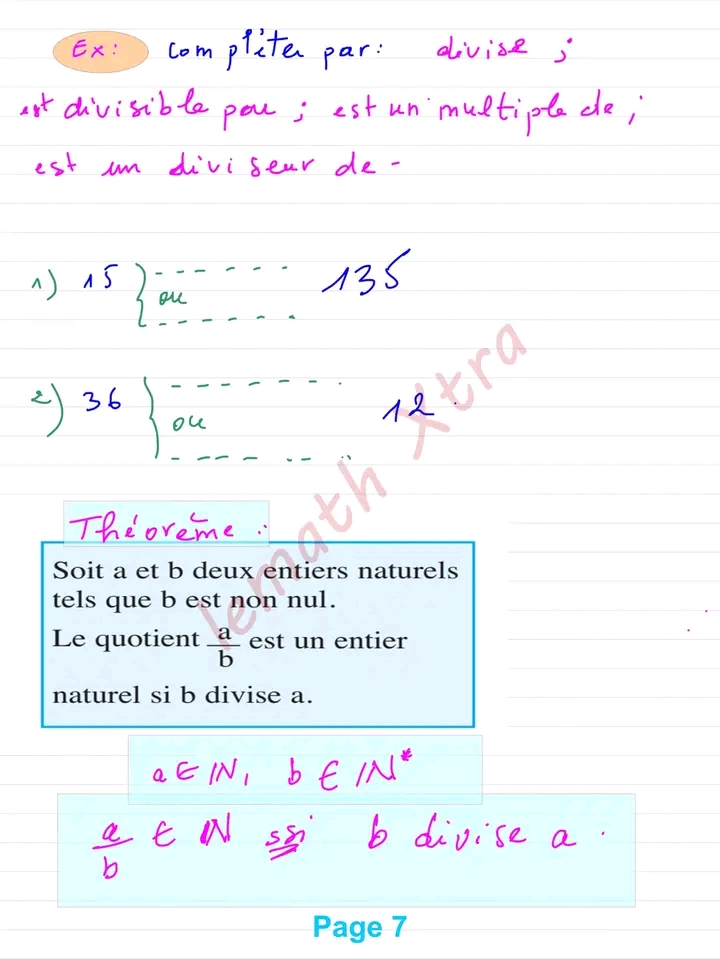 Ex: complèter par: divise ;
est divisible par ; est un multiple de ;
est un diviseur de -
1) 15 { - - - - - - 135
ou
- - - - - -
2) 36 { - - - - - - - 12
ou
- - - - - - -
Théorème :
Soit a et b deux entiers naturels
tels que b est non nul.
Le quotient a/b est un entier
naturel si b divise a.
a ∈ IN, b ∈ IN*
a/b ∈ IN ssi b divise a .
lemath Xtra
Page 7